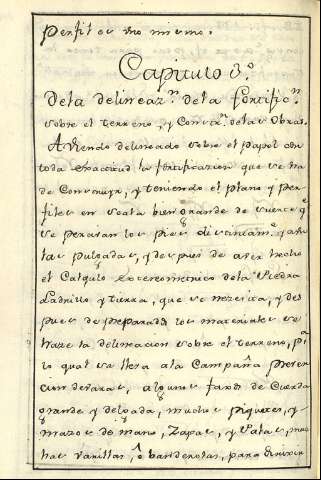 Perfil es uno mismo.
Capitulo 3.º
De la delineaz.n de la fortific.n
sobre el terreno, y Const.n de las Obras.
Aviendo delineado sobre el papel con
toda exactitud la fortificazion que se ha
de Construyr, y teniendo el plano y per-
files en scala bien grande de suerte q.e
se
los pies distintam.te y as
las pulgadas, y despues de aver hecho
el Calculo de la Piedra
Ladrillo y tierra, que se nezesita, y des
pues de preparados los materiales se
haze la delineacion sobre el terreno, p.a
lo qual se lleva a la Campaña preven
cion de varas, algunos de Cuerda
grande y delgada, muchos piquetes, y
mazos de mano, Zapas, y Palas, mu
chas varillas, ò banderolas, para